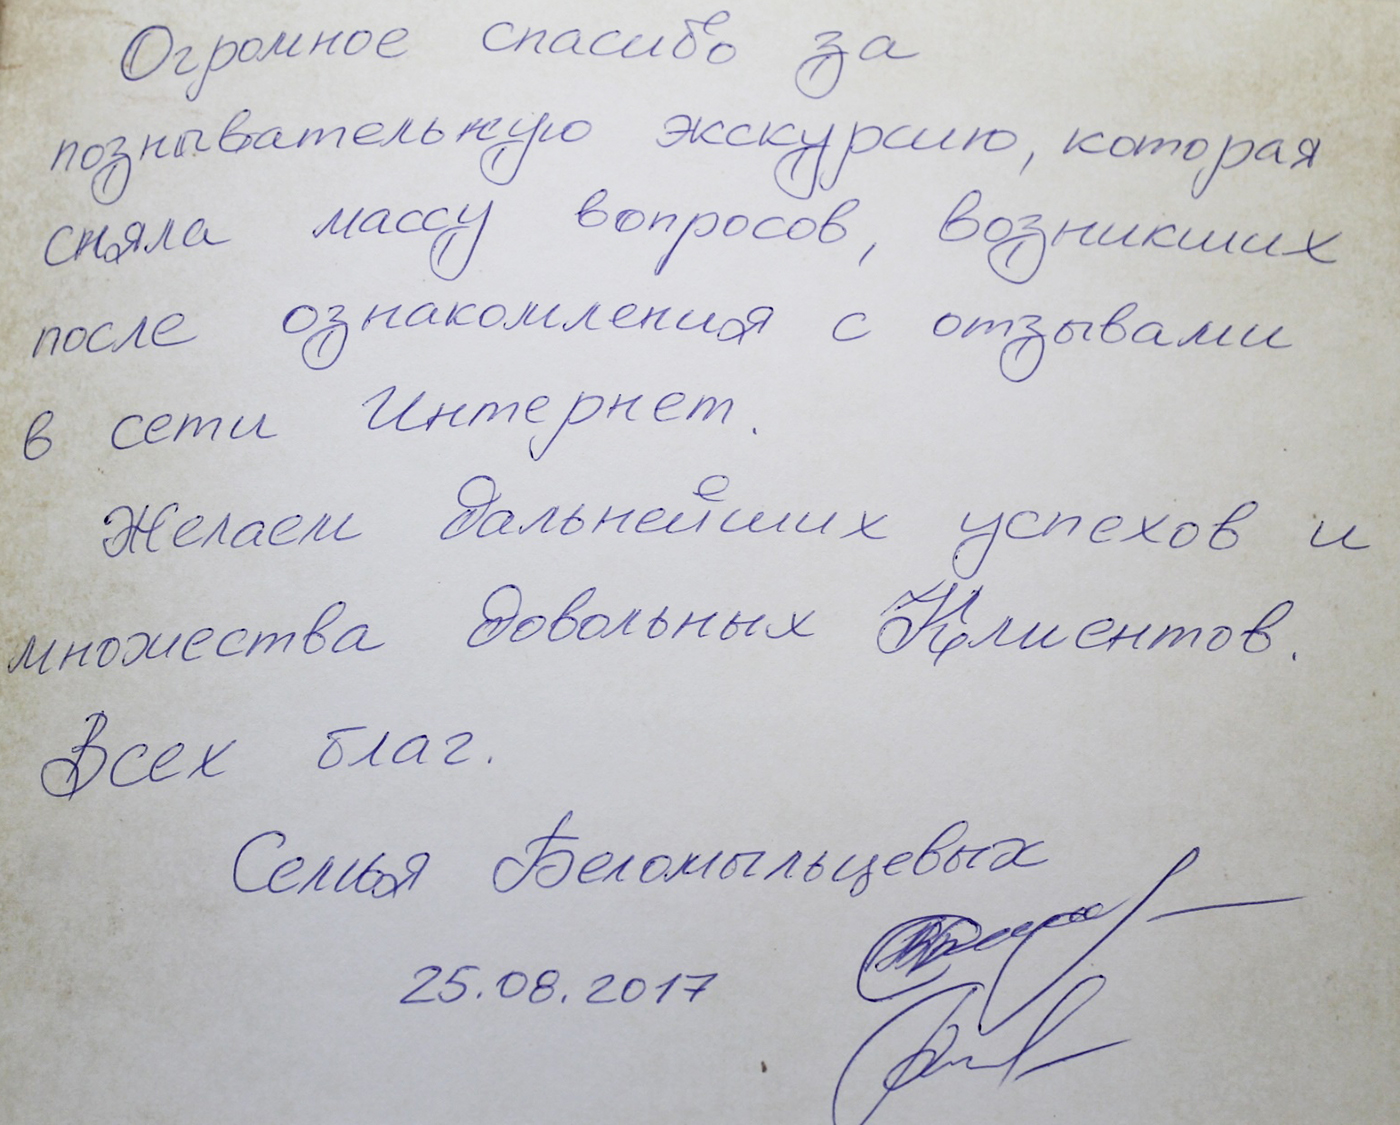 Огромное спасибо за
познывательную экскурсию, которая
сняла массу вопросов, возникших
после ознакомления с отзывами
в сети Интернет.
Желаем дальнейших успехов и
множества довольных Клиентов.
Всех благ.
Семья Беломыльцевых
25.08.2017